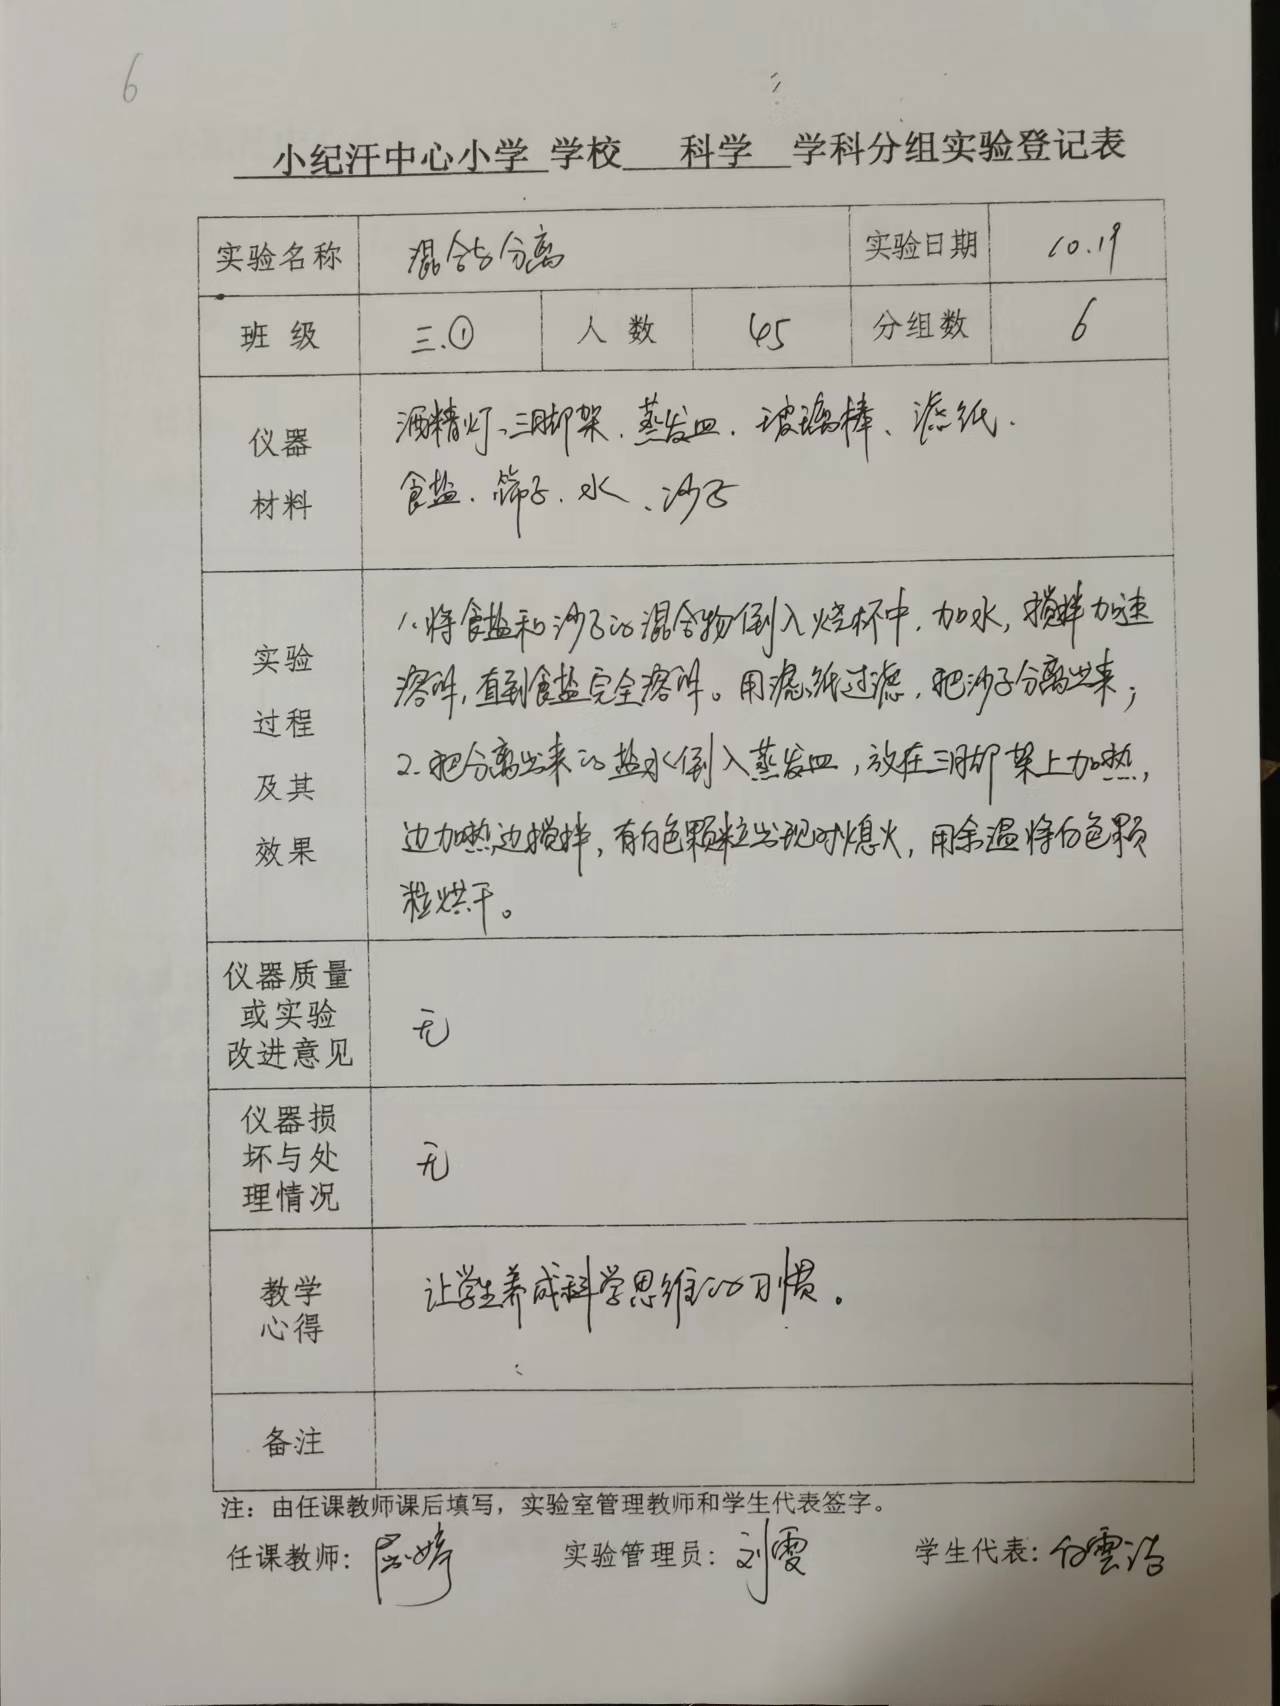 6
小纪汗中心小学 学校 科学 学科分组实验登记表
实验名称 混合与分离 实验日期 10.19
班级 三.① 人数 45 分组数 6
仪器
材料
酒精灯、三脚架、蒸发皿、玻璃棒、滤纸、
食盐、筛子、水、沙子
实验
过程
及其
效果
1、将食盐和沙子的混合物倒入烧杯中，加水，搅拌加速
溶解，直到食盐完全溶解。用滤纸过滤，把沙子分离出来；
2.把分离出来的盐水倒入蒸发皿，放在三脚架上加热，
边加热边搅拌，有白色颗粒出现时熄火，用余温将白色颗
粒烘干。
仪器质量
或实验
改进意见
无
仪器损
坏与处
理情况
无
教学
心得
让学生养成科学思维的习惯。
备注
注：由任课教师课后填写，实验室管理教师和学生代表签字。
任课教师： 实验管理员：刘雯 学生代表：